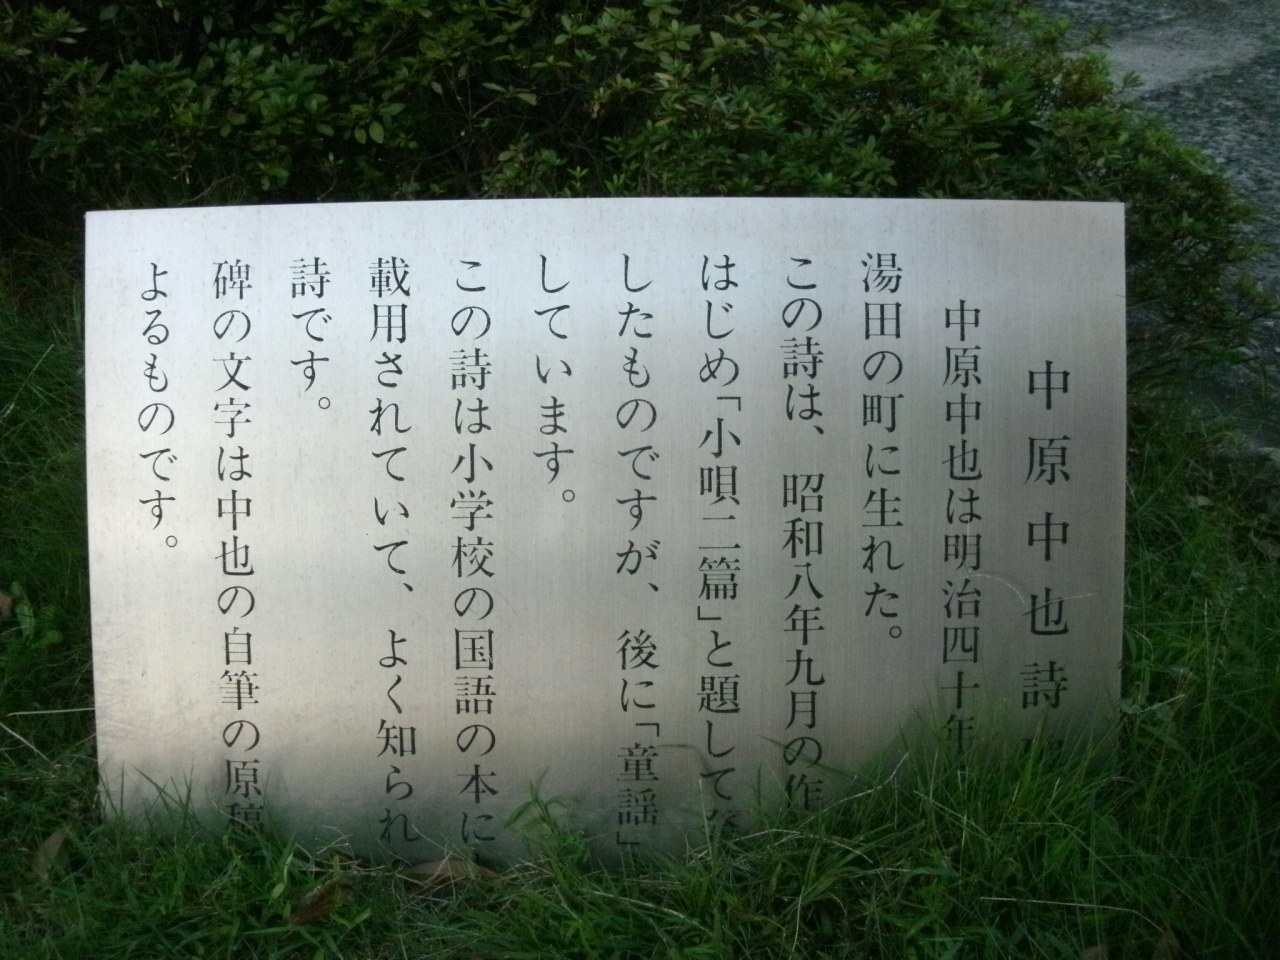 中原中也詩
中原中也は明治四十年
湯田の町に生れた。
この詩は、昭和八年九月の作
はじめ「小唄二篇」と題して
したものですが、後に「童謡」
しています。
この詩は小学校の国語の本に
載用されていて、よく知られ
詩です。
碑の文字は中也の自筆の原稿
よるものです。